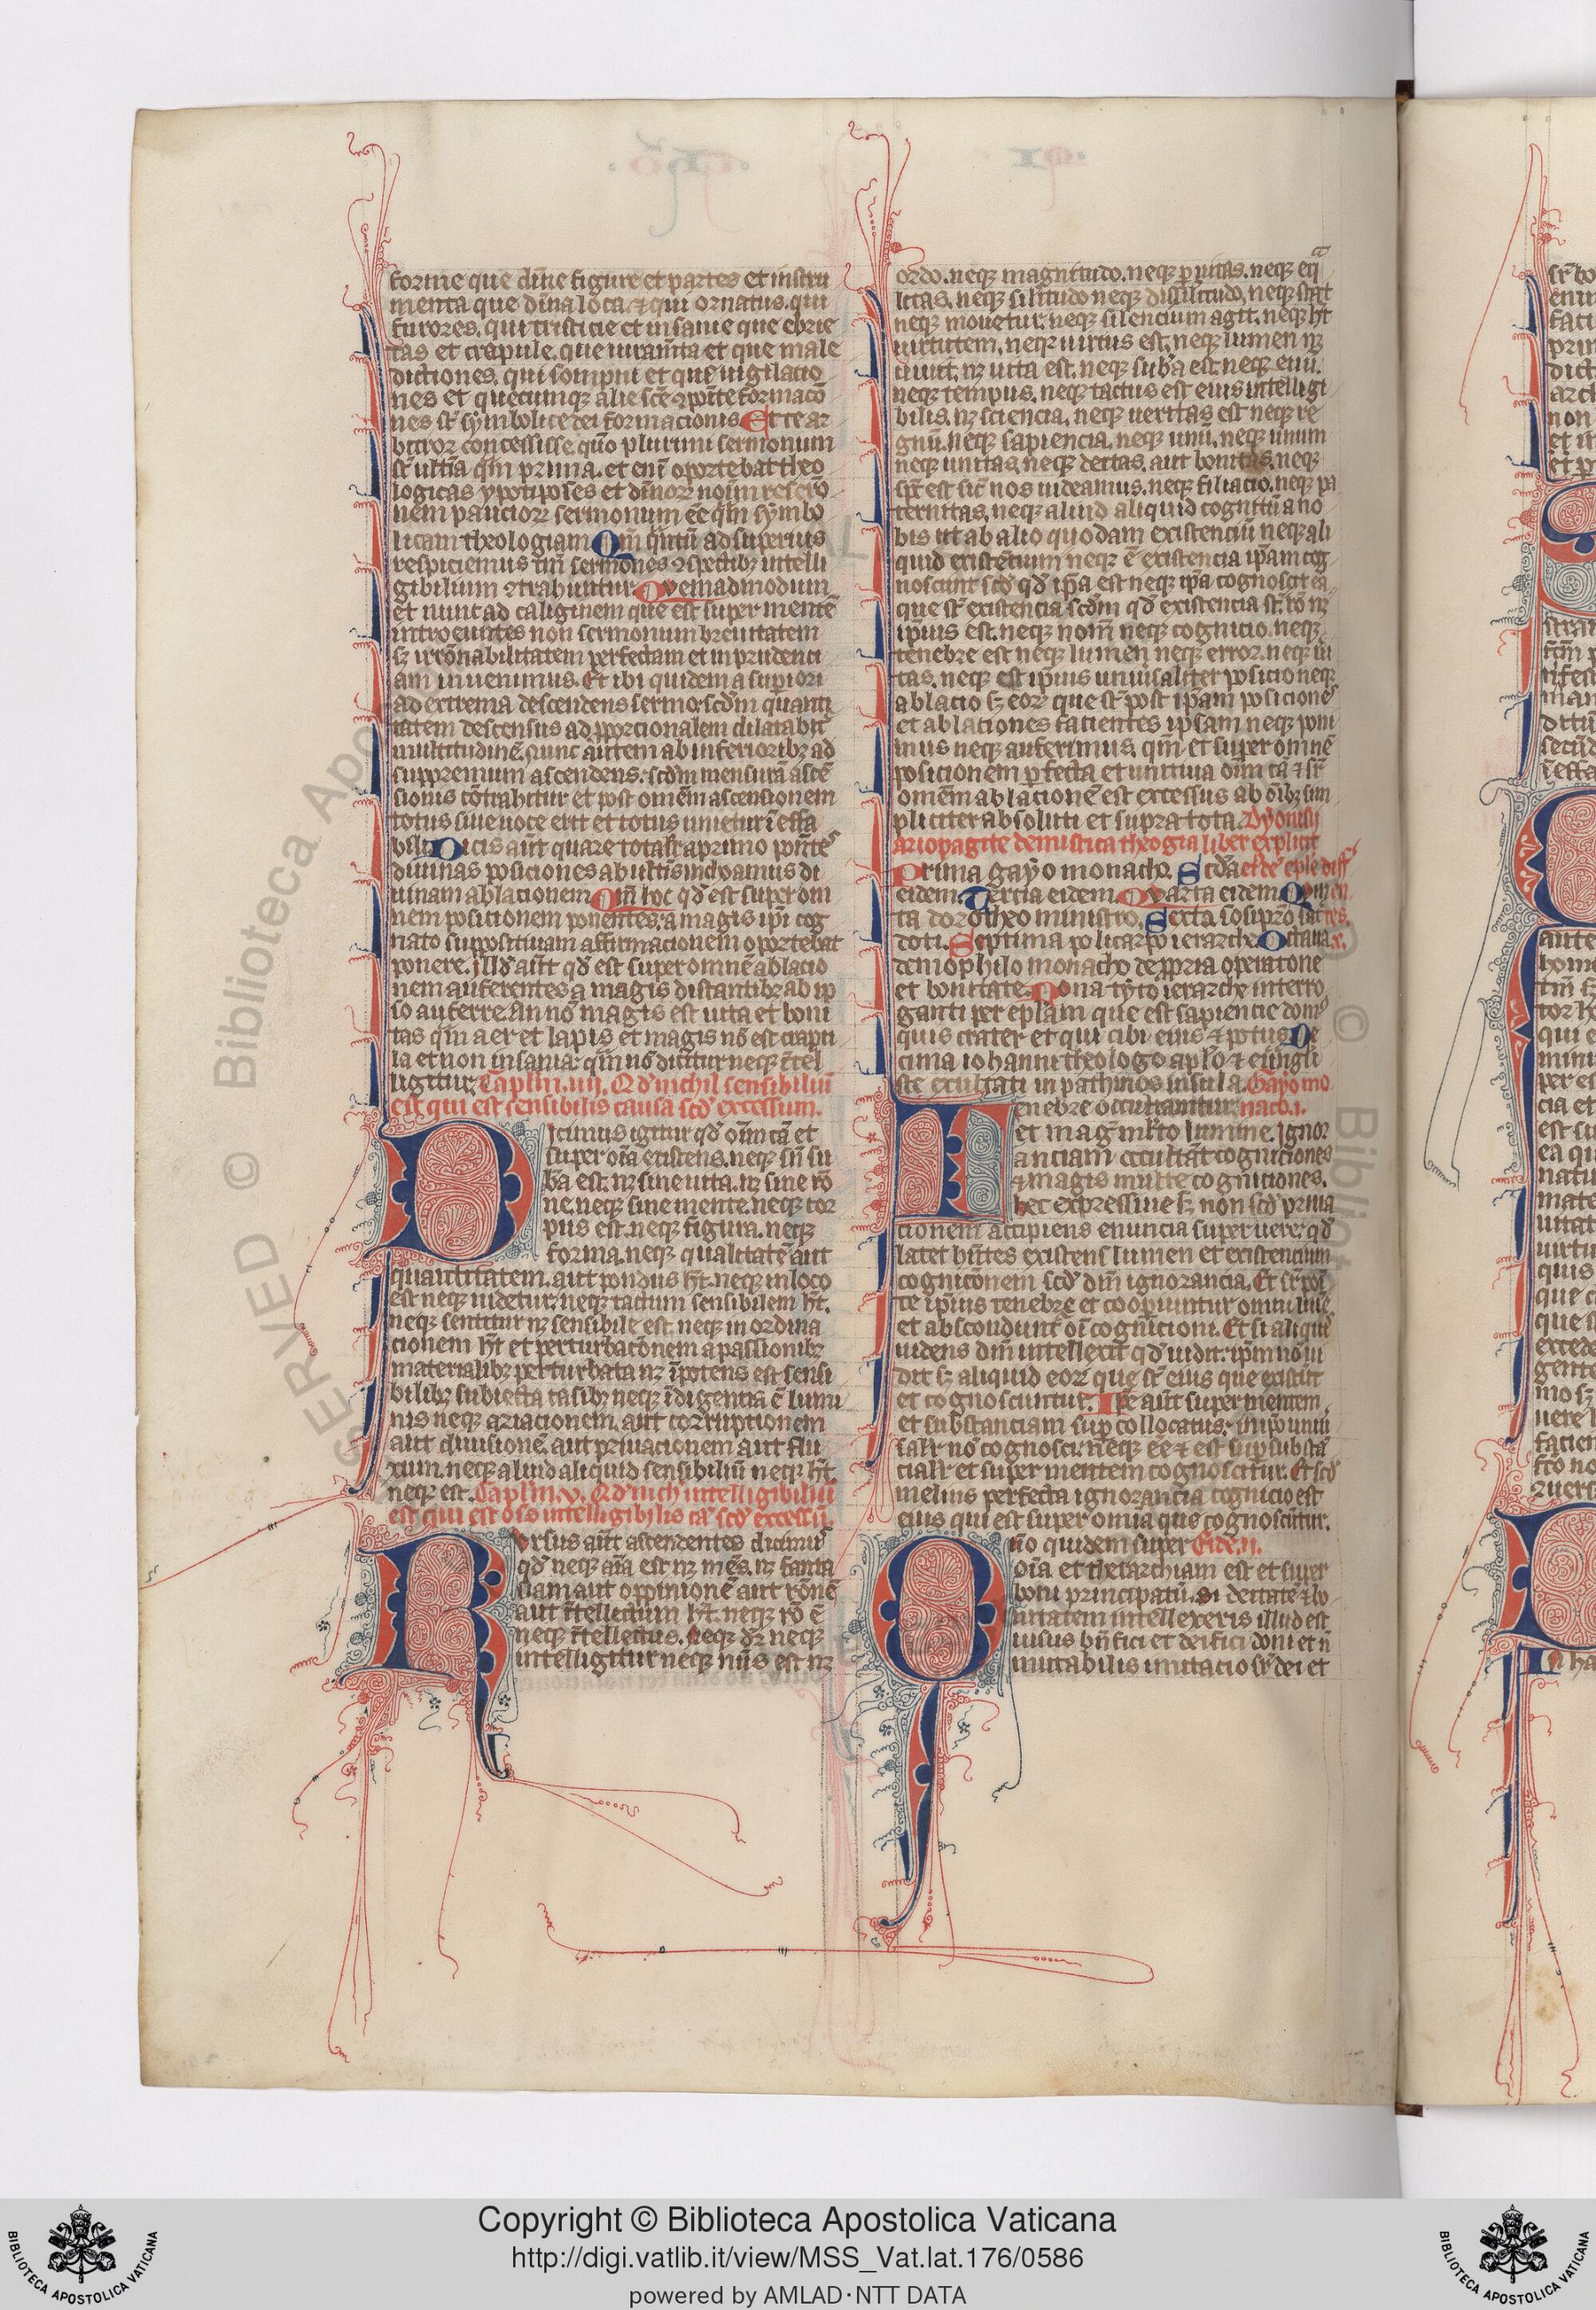 forme que diuē figure et partes et instru
menta que diuīa loca. ⁊ qui ornatus. qui
furores. qui tristicie et insanie que ebrie
tas et crapule. que iuram̄ta et que male
dictiones. qui sompni et que uigilatio
nes et quecumqꝫ alie scē ⁊pōīte formacō
nes st̄ symbolice dei formacionis Et te ar
bitror concessisse. quō plurimi sermonum
st̄ ultīa qm̄ prima. et eni oportebat theo
logicas ypotiposes et diuinoꝝ noīm reserō
nem pauciorꝝ sermonum eē qm̄ symbo
licam theologiam Qm̄ q̄ntū ad superius
respiciemus tm̄ sermones ⁊spectibꝫ intelli
gibilium ⁊trahuntur. Quemadmodum
et nunc ad caliginem que est super mentē
introeuntes non sermonum breuitatem
sꝫ irrōnabilitatem perfectam et inprudenci
am inuenimus. Et ibi quidem a superiori
ad extrema descendens sermo. scd̄m quanti
tatem descensus ad ꝓporcionalem dilatabit̄
multitudinē. Nunc autem ab inferioribꝫ ad
suppremum ascendens: scd̄m mensurā ascē
sionis cōtrahitur et post omēm ascensionem
totus siue uoce erit et totus unietur īeffa
bili Dicis aūt quare totalr̄ a primo ponētes
diuinas posiciones ab ultīs inchoamus di
uinam ablacionem Qm̄ hoc qd̄ est super om
nem posicionem ponentes. a magis ipī cog
nato suppositiuam affirmacionem oportebat
ponere. Illd̄ aūt qd̄ est super omnē ablacio
nem auferentes a magis distantibꝫ ab ip
so auferre an nō magis est uita et boni
tas qm̄ aer et lapis et magis nō est crapu
la et non insania: qm̄ nō dicitur neqꝫ ītel
ligitur. Caplm̄. iiij. Qd̄ nichil sensibiliū
est qui est sensibilis causa scd̄ excessum.
Dicimus igitur qd̄ oīm cā et
super oīa existens. neqꝫ sn̄ su
bā est. nꝫ sine uita. nꝫ sine rō
ne. neqꝫ sine mente. neqꝫ cor
pus est. neqꝫ figura. neqꝫ
forma. neqꝫ qualitatē aut
quantitatem. aut pondus ht̄. neqꝫ in loco
est neqꝫ uidetur. neqꝫ tactum sensibilem ht̄.
neqꝫ sentitur nꝫ sensibile est. neqꝫ in ordina
cionem ht̄ et perturbacōnem a passionibꝫ
materialibꝫ perturbata nꝫ īpotens est sensi
bilibꝫ subiecta casibꝫ neqꝫ īdigentia ē lumi
nis neqꝫ ariacionem. aut corruptionem
aut diuisionē. aut priuacionem aut flu
xum. neqꝫ aliud aliquid sensibiliū neqꝫ ht̄.
neqꝫ est. Caplm̄. v. Qd̄ nich̄ intelligibiliū
est qui est ōis intelligibilis cā scd̄ excessū.
Rursus aūt ascendentes dicimꝰ
qd̄ neqꝫ aīa est nꝫ mēs. nꝫ fanta
siam aut oppinionē aut rōnē
aut ītellectum ht̄. neqꝫ rō ē
neqꝫ ītellectus. Neqꝫ dꝛ̄ neqꝫ
intelligitur neqꝫ nūs est nꝫ
ordo. neqꝫ magnitudo. neqꝫ ꝑuitas. neqꝫ eq̄
litas. neqꝫ silitudo neqꝫ dissilitudo. neqꝫ stat
neqꝫ mouetur. neqꝫ silencium agit. neqꝫ ht̄
uirtutem. neqꝫ uirtus est. neqꝫ lumen nꝫ
uiuit. nꝫ uita est. neqꝫ sub̄a est. neqꝫ euū.
neqꝫ tempus. neqꝫ tactus est eius intelligi
bilis. nꝫ sciencia. neqꝫ ueritas est neqꝫ re
gnū. neqꝫ sapiencia. neqꝫ unū. neqꝫ unum
neqꝫ unitas. neqꝫ deitas. aut bonitas. neqꝫ
sp̄c est sic̄ nos uideamus. neqꝫ filiacio. neqꝫ pa
ternitas. neqꝫ aliud aliquid cognitū a no
bis ut ab alio quodam existenciū neqꝫ ali
quid existēcium neqꝫ ē existencia ipam cog
noscunt scd̄ qd̄ ip̄a est neqꝫ ip̄a cognoscit ea
que st̄ existencia scd̄m qd̄ existencia st̄. rō nꝫ
ip̄ius est. neqꝫ nom̄ neqꝫ cognicio. neqꝫ
tenebre est neqꝫ lumen neqꝫ error. neqꝫ ūi
tas. neqꝫ est ip̄ius uniuersaliter posicio neqꝫ
ablacio sꝫ eorꝝ que st̄ post ip̄am posiciones
et ablationes facientes ipsam neqꝫ poni
mus neqꝫ auferimus. qm̄ et super omnē
posicionem ꝑfecta et unitiua oīm cā ⁊ sr̄
omēm ablacionē est excessus ab oībꝫ sim
pliciter absoluti et supra tota. Dyonisij
ariopagite de mistica theogia liber explicit
Prima gayo monacho. Scd̄a eidē eple diff
eidem. Tercia eidem. Quarta eidem Quin en
ta dorotheo ministro. Sexta sosipro sac̄ tes.
doti. Septima policarpo ierarche. Octaua x.
demophilo monacho de ꝓpria operatione
et bonitate. Nona tyto ierarche interro
ganti per eplam que est sapiencie domꝰ
quis crater et qui cibi eius ⁊ potus De
cima iohanni theologo aplo ⁊ euāgli
ste exultati in pathmos insula. Gayo mo
Tenebre occultantur nacō. i.
et maḡ mlt̄o lumine. Ignor
anciam occultāt cogniciones
⁊ magis multe cogniciones.
hec expressiue sꝫ non scd̄ priua
cionem accipiens enuncia super uere. qd̄
latet hn̄tes existens lumen et existencium
cognicōnem scd̄ dm̄ ignorancia. Et
te ip̄ius tenebre et cooperiuntur omni lum̄e
et abscondunt̄ oī cognicioni. Et si aliquis
uidens dm̄ intellexit qd̄ uidit. ipm nō ui
dit sꝫ aliquid eorꝝ que st̄ eius que existūt
et cognoscuntur. Ip̄e aūt super mentem
et substanciam suꝑ collocatus: in ipo uniu
salr̄ nō cognosci neqꝫ eē ⁊ est suꝑsubsta
cialr̄ et super mentem cognoscitur. Et scd̄
melius perfecta ignorancia cognicio est
eius qui est super omia que cognoscuntur.
Quō quidem super Eidē. ij.
oīa et thearchiam est et super
boni principatū. Si deitatē ⁊ bo
nitatem intellexeris illud est
uisus bn̄fici et deifici doni et ī
imitabilis imitacio sr̄ dei et
RESERVED © Biblioteca Apostolica
Copyright © Biblioteca Apostolica Vaticana
http://digi.vatlib.it/view/MSS_Vat.lat.176/0586
powered by AMLAD·NTT DATA
BIBLIOTECA APOSTOLICA VATICANA
BIBLIOTECA APOSTOLICA VATICANA